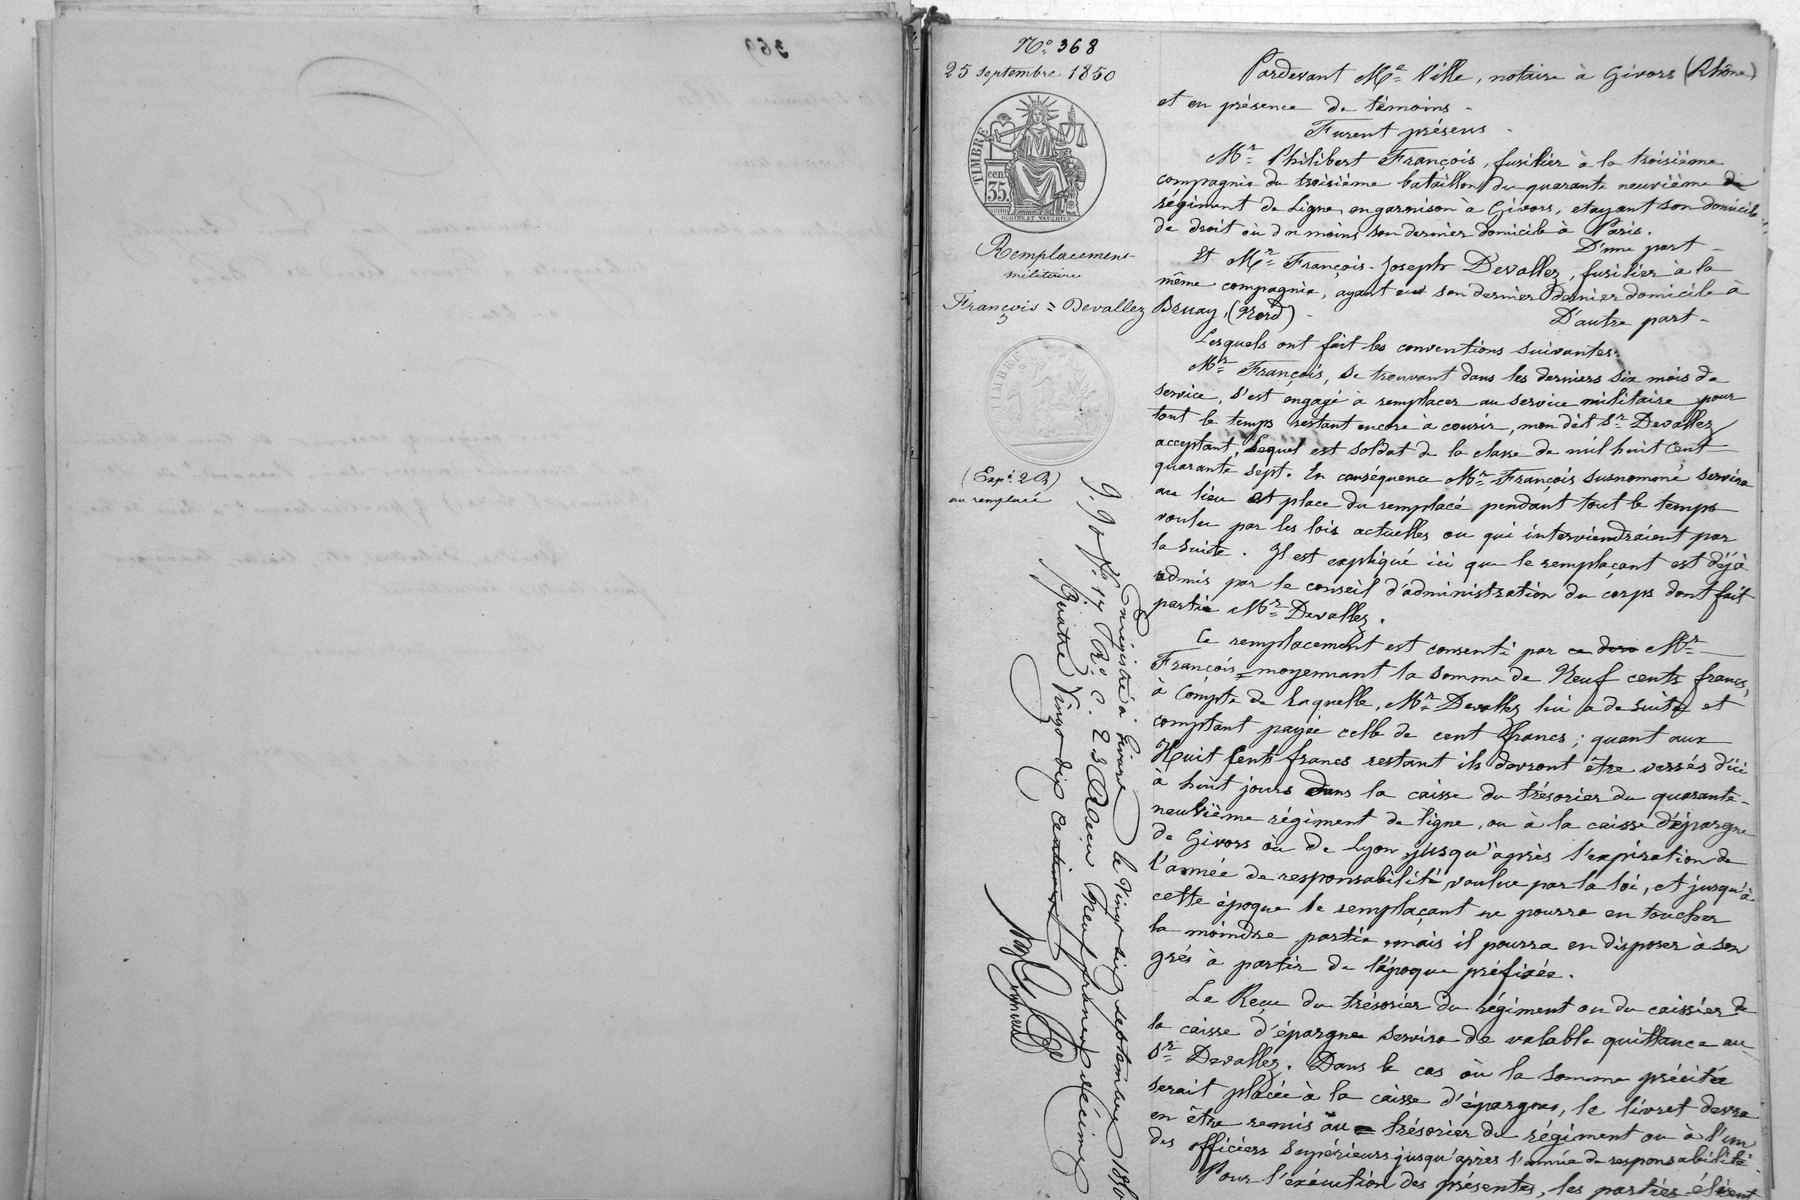 367
N° 368
25 septembre 1850
TIMBRE
cen.
35.
Remplacement
militaire
François = Devallez
TIMBRE
(Expé. 2 R)
au remplacé
Pardevant Me Ville, notaire à Givors (Rhône)
et en présence de témoins.
Furent présens
Mr Philibert François, fusilier à la troisième
compagnie du troisième bataillon du quarante neuvième de
régiment de Ligne, en garnison à Givors, et ayant son domicile
de droit où du moins son dernier domicile à Paris.
D'une part
Et Mr François-Joseph Devallez, fusilier à la
même compagnie, ayant eu son dernier dernier domicile à
Bruay, (Nord)
D'autre part
Lesquels ont fait les conventions suivantes.
Mr François, se trouvant dans les derniers six mois de
service, s'est engagé a remplacer au service militaire pour
tout le temps restant encore à courir, mon dit Sr Devallez
acceptant, lequel est soldat de la classe de mil huit cent
quarante sept. En conséquence Mr François susnommé servira
au lieu et place du remplacé pendant tout le temps
voulu par les lois actuelles ou qui interviendraient par
la suite. Il est expliqué ici que le remplaçant est déjà
admis par le conseil d'administration du corps dont fait
partie Mr Devallez.
Ce remplacement est consenti par Mr
François moyennant la somme de Neuf cents francs,
à Compte de laquelle, Mr Devallez lui a de suite et
comptant payée celle de cent francs; quant aux
Huit Cents francs restant ils devront être versés d'ici
à huit jours dans la caisse du trésorier du quarante-
neuvième régiment de ligne, ou à la caisse d'épargne
de Givors où de Lyon jusqu'après l'expiration de
l'année de responsabilité voulue par la loi, et jusqu'à
cette époque le remplaçant ne pourra en toucher
la moindre partie mais il pourra en disposer à son
gré à partir de l'époque préfixée.
Le Reçu du trésorier du régiment ou du caissier de
la caisse d'épargne servira de valable quittance au
Sr Devallez. Dans le cas où la somme précitée
serait placée à la caisse d'épargne, le livret devra
en être remis au trésorier du régiment ou à l'un
des officiers supérieurs jusqu'après l'année de responsabilité
Pour l'exécution des présentes, les parties élisent
Enregistré à Givors le Vingt six septembre 1850
f° 17 R° C. 2 3 Reçu neuf francs décime
Quatre Vingt dix centimes